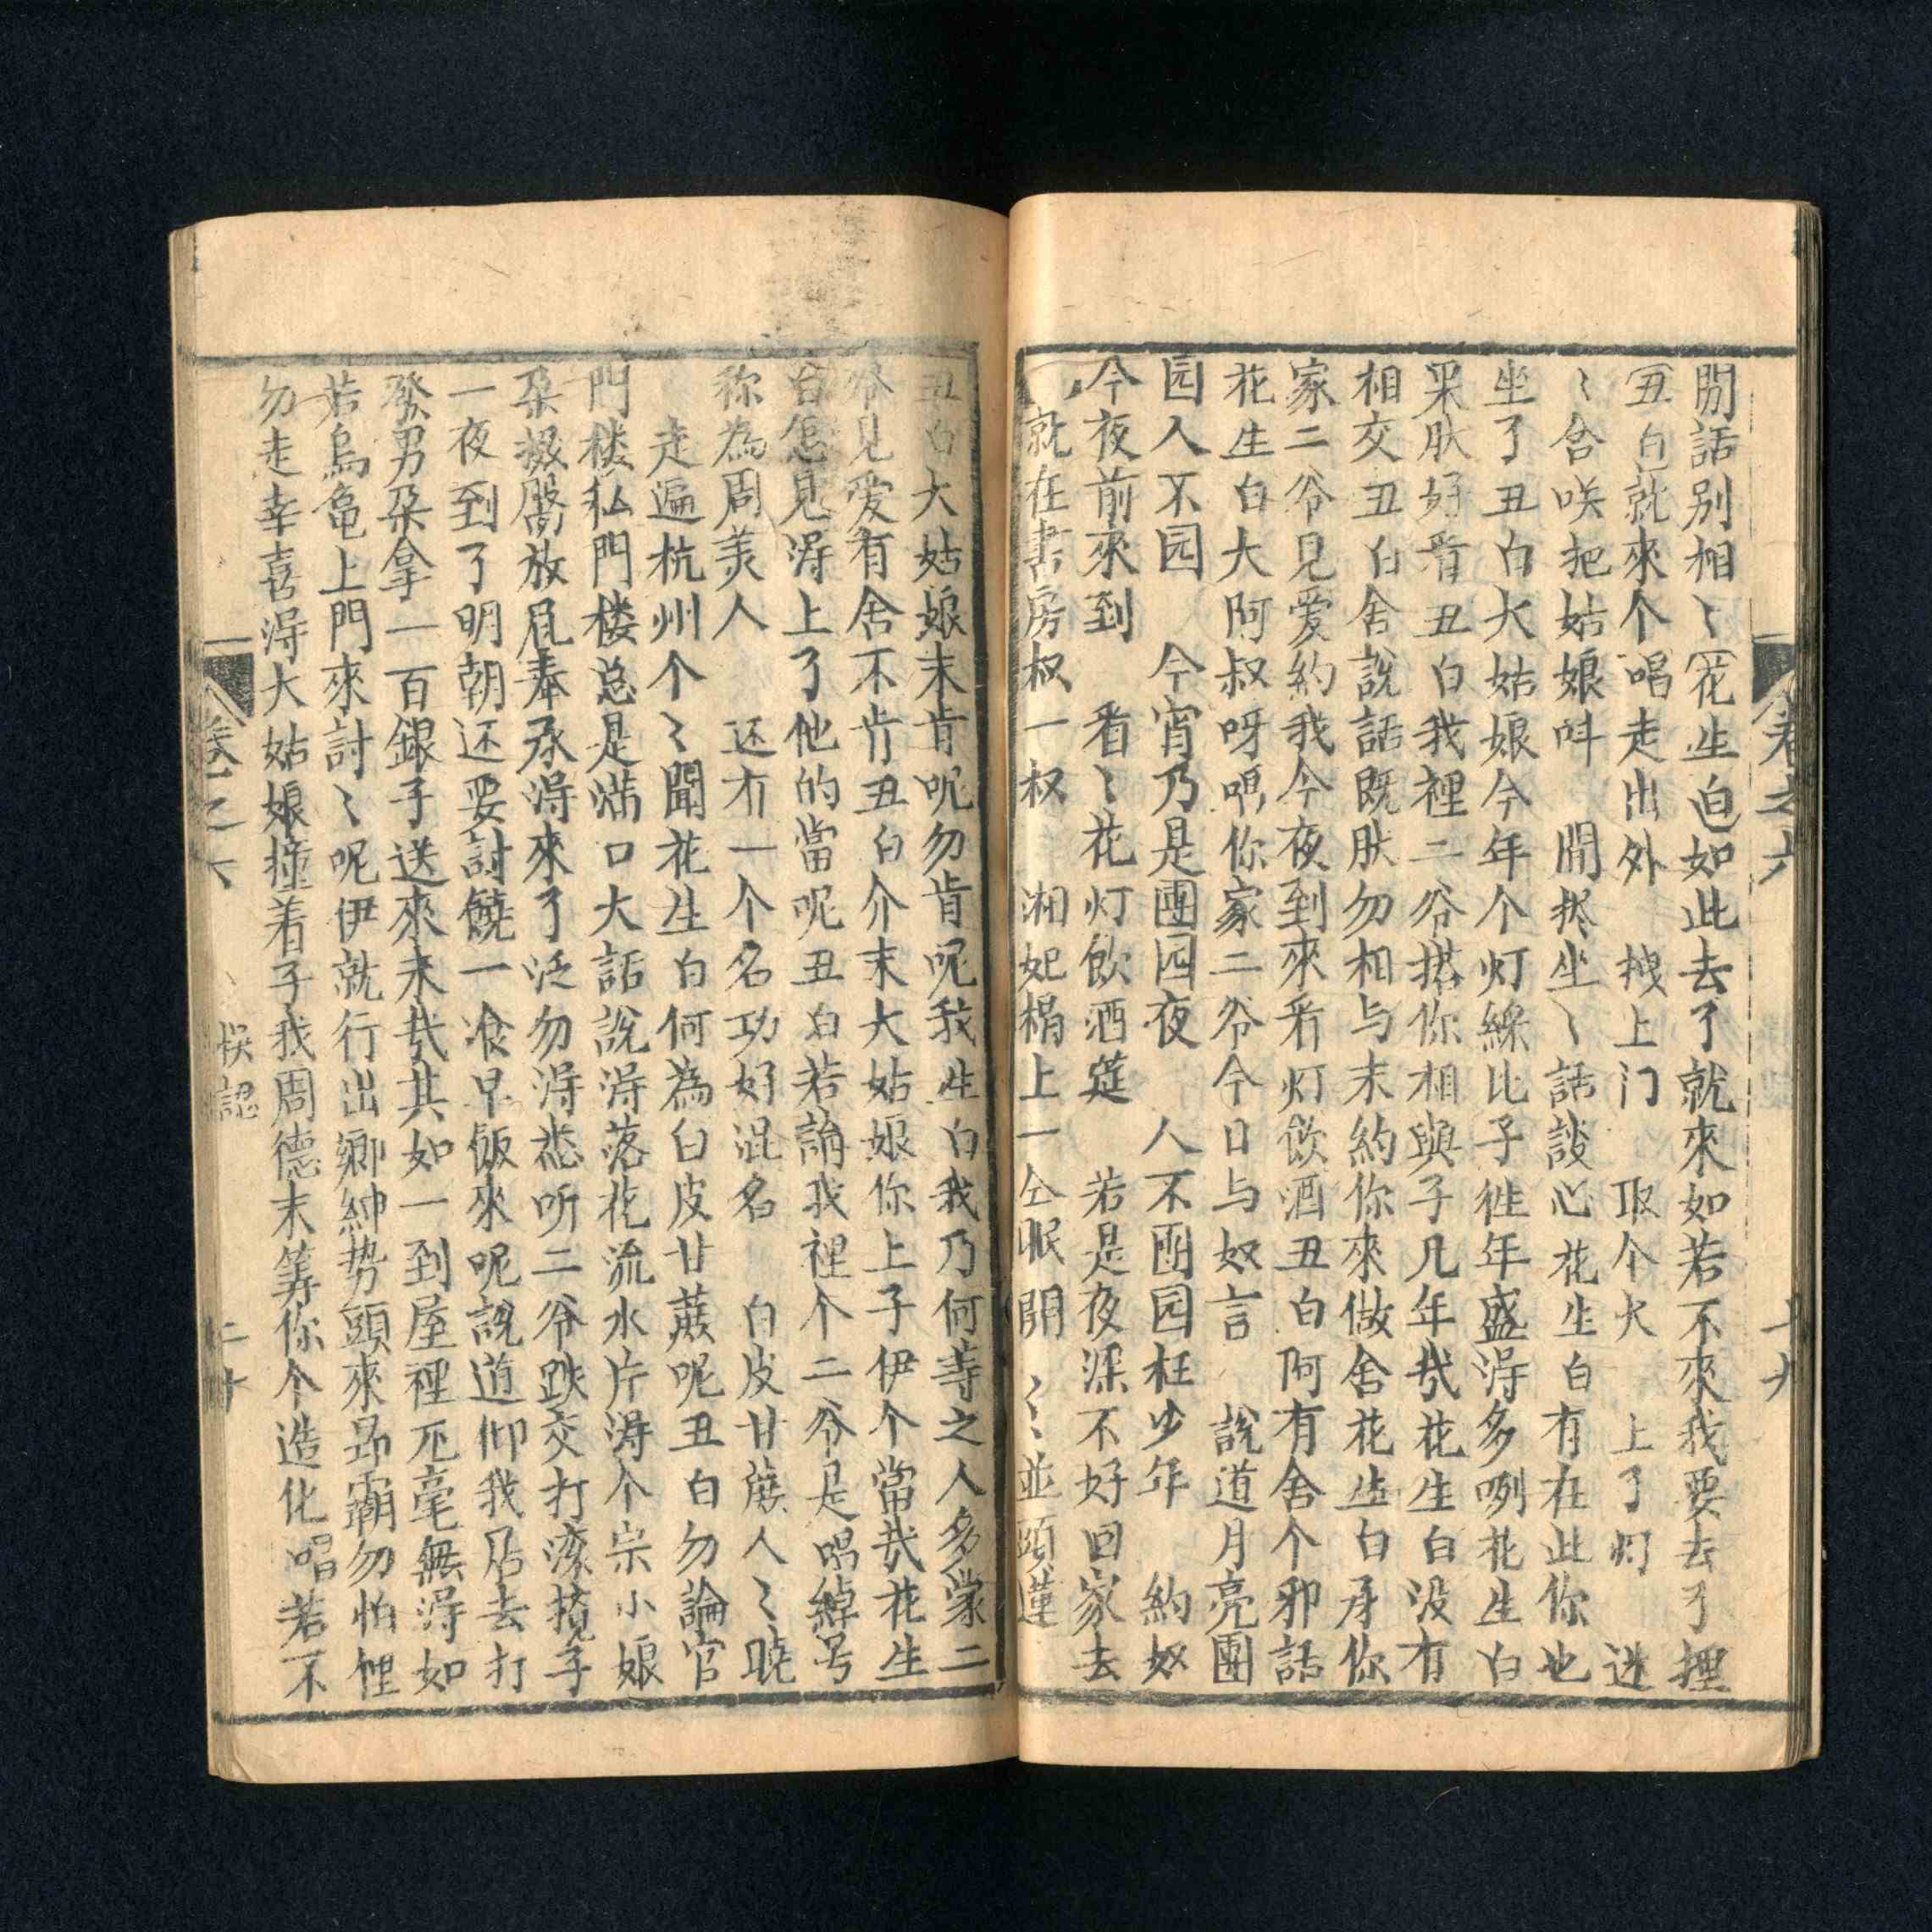 卷之六
十九
閒話別相〻(花生白)如此去了就來如若不來我要去了捚
(丑白)就來个唱走出外　拽上门　取个火　上了灯　迯
〻含咲把姑娘呌　閒拶坐〻話談心花生白有在此你也
坐了丑白大姑娘今年个灯綵比子徃年盛淂多咧花生白
果肰好看丑白我裡二爷搭你相與子几年㢤花生白没有
相交丑白舍說話既肰勿相与末約你來做舍花生白牙你
家二爷見爱約我今夜到來看灯飲酒丑白阿有舍个邪話
花生白大阿叔呀唓你家二爷今日与奴言　說道月亮團
园人不园　今宵乃是團园夜　人不團园枉少年　約奴
今夜前來到　看〻花灯飲酒筵　若是夜深不好回家去
就在書房叔一权　湘妃榻上一仝眠　開〻並頭蓮
丑白大姑娘末肯呢勿肯呢我生白我乃何等之人多蒙二
爷見爱有舍不肯丑白介末大姑娘你上子伊个當㢤花生
白怎見淂上了他的當呢丑白若論我裡个二爷是唱綽号
称為周美人　还有一个名功好混名　白皮甘蔗人〻曉
走遍杭州个〻聞花生白何為白皮甘蔗呢丑白勿論官
門楼私門楼总是满口大話說淂落花流水片淂个宗小娘
朶掇臋放屁奉承淂來了泛勿淂㤠听二爷跌交打滚攪子
一夜到了明朝还要討饒一飡早飯來呢說道仰我店去打
發男朶拿一百銀子送來未㢤其如一到屋裡丕毫無淂如
若烏亀上門來討〻呢伊就行出鄉紳势頭來昻霸勿怕俚
勿走幸喜淂大姑娘撞着子我周德末筭你个造化唱若不
卷之六
悞認
二十